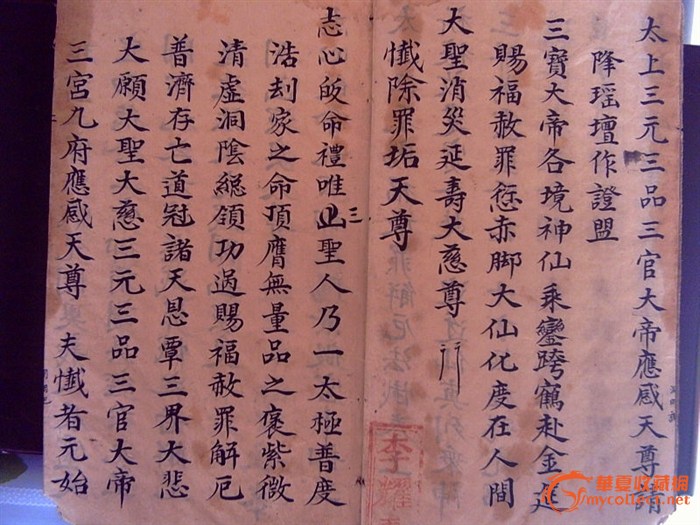 太上三元三品三官大帝應感天尊請
降瑶壇作證盟
三寶大帝各境神仙乘鑾跨鶴赴金廷
賜福赦罪愆赤脚大仙化度在人間
大聖消災延壽大慈尊 行
大懺除罪垢天尊
志心皈命禮唯三㞢聖人乃一太極普度
浩刦家之命頂膺無量品之褒紫微
清虚洞陰緫領功過賜福赦罪解厄
普濟存亡道冠諸天恩覃三界大悲
大願大聖大慈三元三品三官大帝
三宮九府應感天尊 夫懺者元始
華夏收藏網
mycollect.net